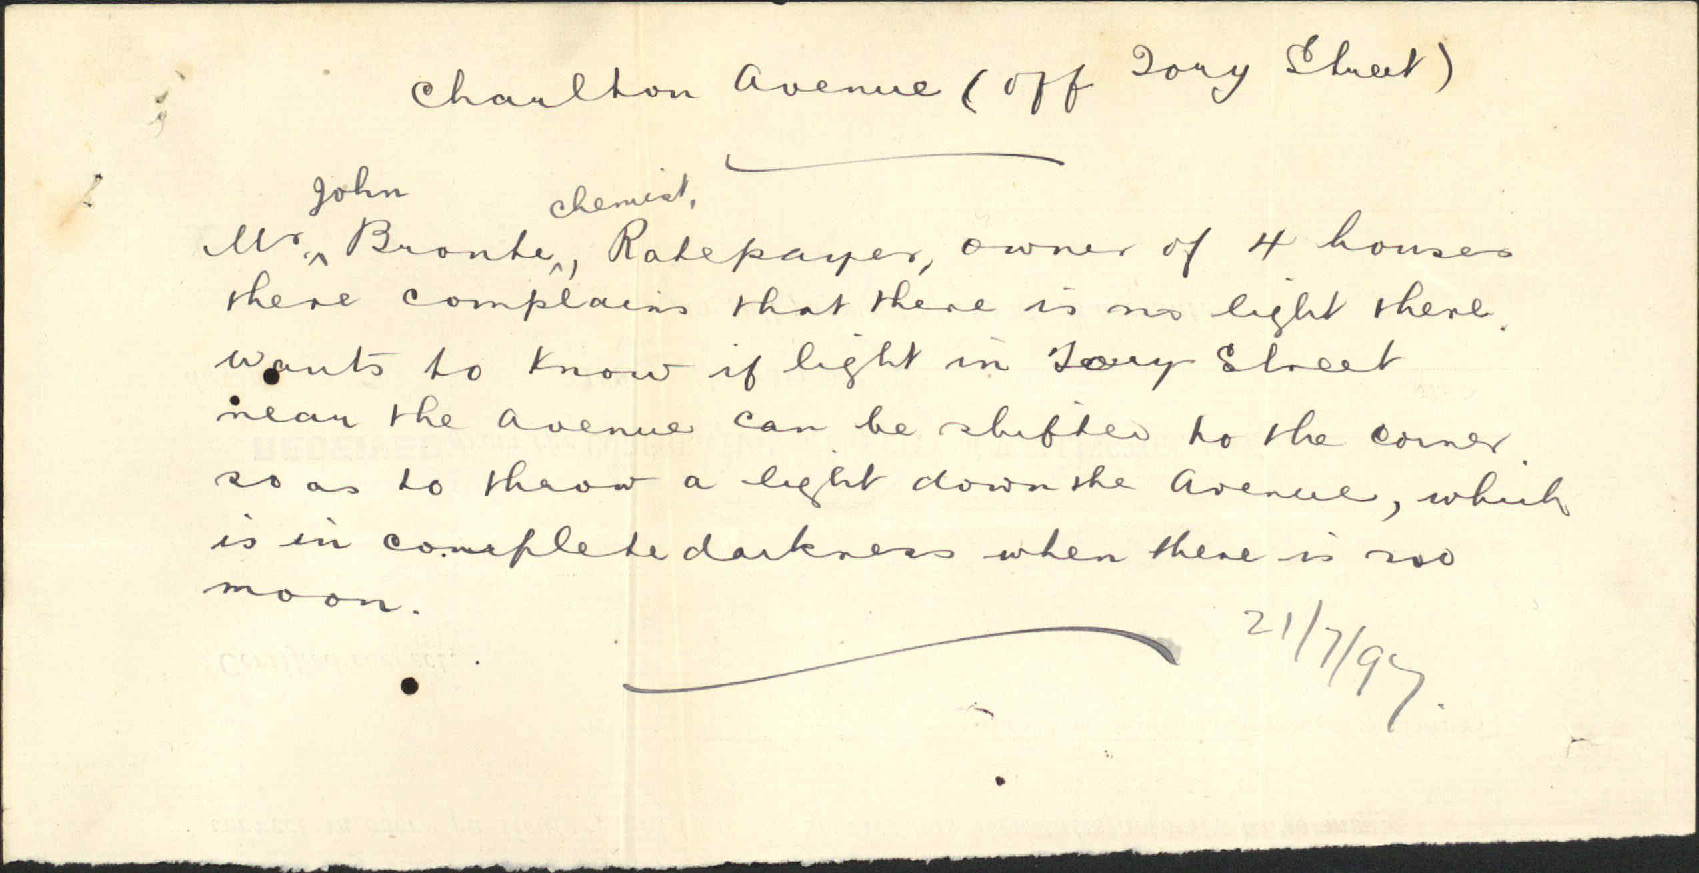 Charlton Avenue (off Tory Street)
John chemist,
Mr ^ Bronte ^, Ratepayer, owner of 4 houses
there complains that there is no light there.
wants to know if light in Tory Street
near the Avenue can be shifted to the corner
so as to throw a light down the Avenue, which
is in complete darkness when there is no
moon.
21/7/97.